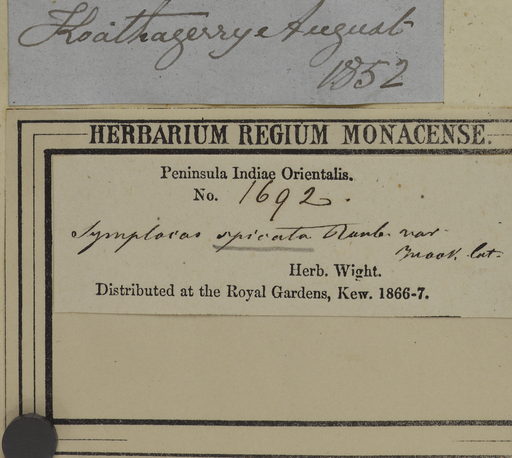 Koathagerrye August
1852
HERBARIUM REGIUM MONACENSE.
Peninsula Indiae Orientalis.
No. 1692.
Symplocos spicata Roxb. var.
Herb. Wight.
Distributed at the Royal Gardens, Kew. 1866-7.